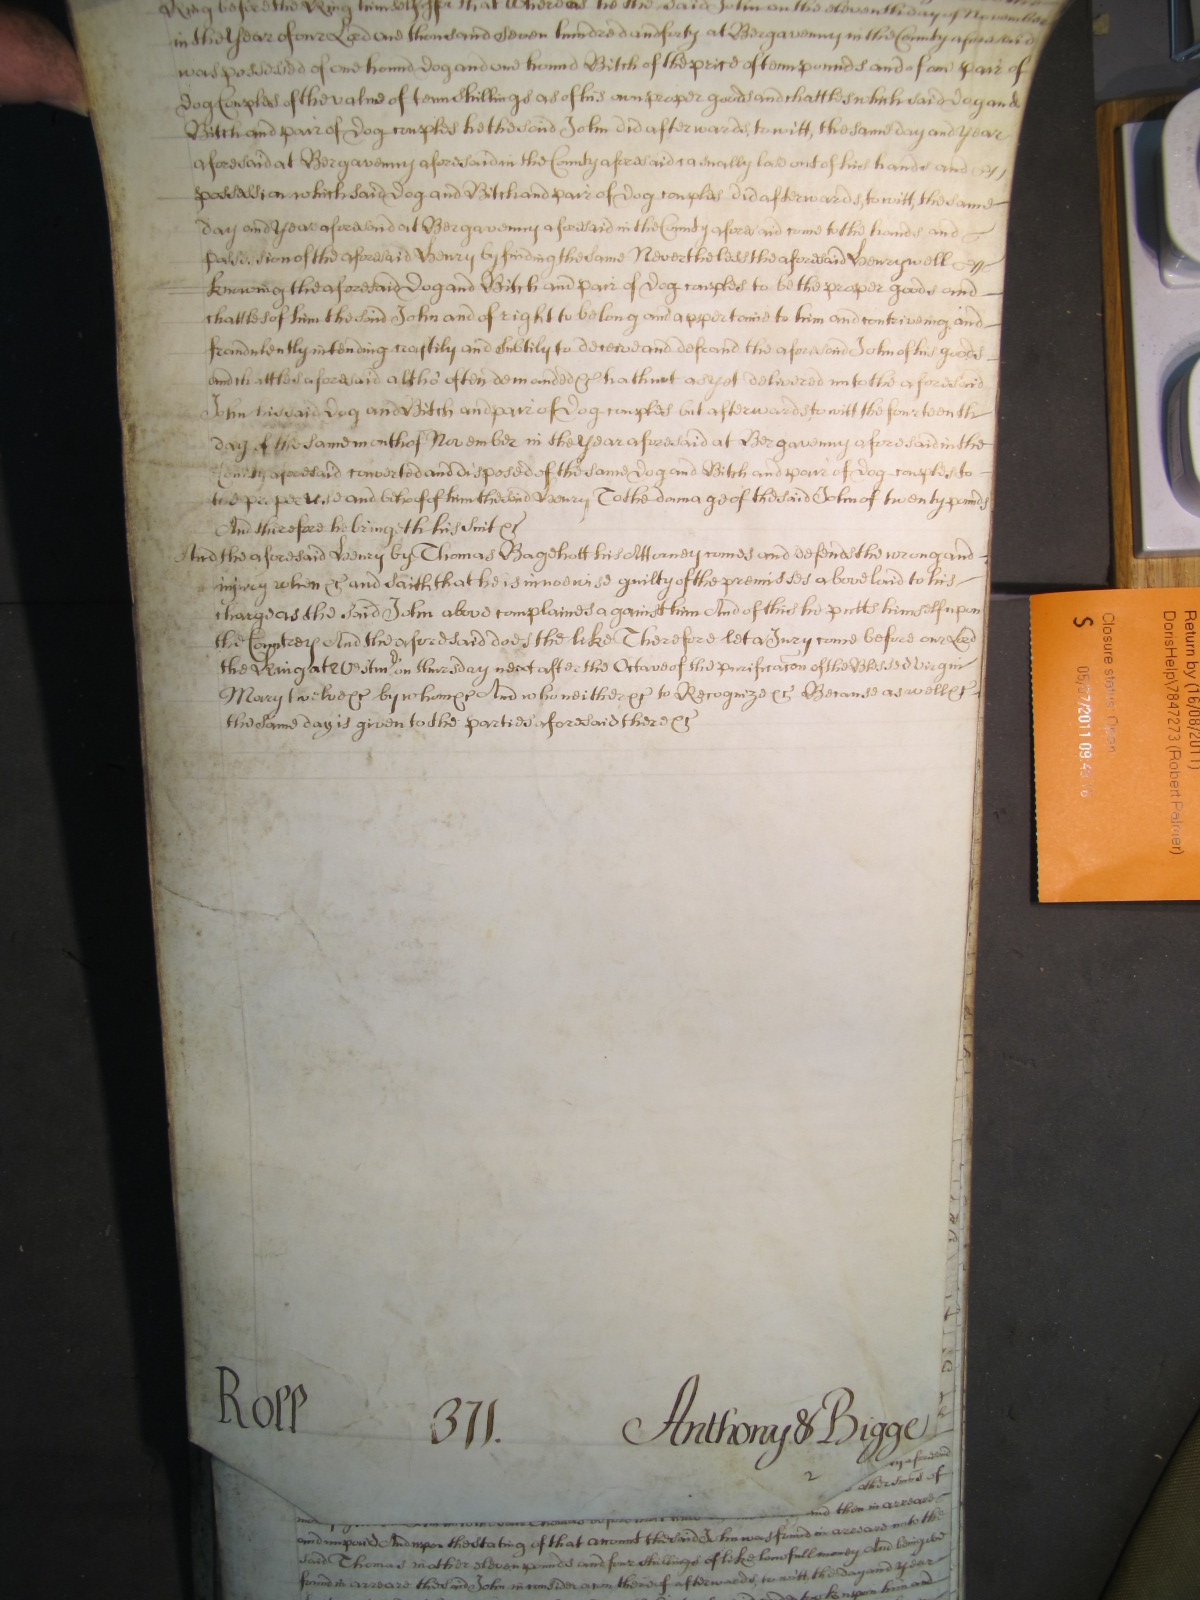 King before the King himself &c For that Whereas he the said John on the eleventh day of November
in the Year of our Lord one thousand seven hundred and forty at Bergavenny in the County aforesaid
was possessed of one hound Dog and one hound Bitch of the price of tenn pounds and of one pair of
Dog Couples of the value of tenn shillings as of his own proper goods and chattles which said Dog and
Bitch and pair of Dog couples he the said John did afterwards, to witt, the same day and Year
aforesaid at Bergavenny aforesaid in the County aforesaid casually lose out of his hands and
possession which said Dog and Bitch and pair of Dog couples did afterwards, to witt, the same
day and Year aforesaid at Bergavenny aforesaid in the County aforesaid come to the hands and
possession of the aforesaid Henry by finding the same Nevertheless the aforesaid Henry well
knowing the aforesaid Dog and Bitch and pair of Dog couples to be the proper goods and
chattles of him the said John and of right to belong and appertaine to him and contriveing and
fraudulently intending craftily and subtily to deceive and defraud the aforesaid John of his goods
and chattles aforesaid altho' often demanded &c hath not as yet delivered unto the aforesaid
John his said Dog and Bitch and pair of Dog couples but afterwards, to witt the fourteenth
day of the same month of November in the Year aforesaid at Bergavenny aforesaid in the
County aforesaid converted and disposed of the same Dog and Bitch and pair of Dog couples to
the proper use and behoof of him the said Henry To the damage of the said John of twenty pounds
And therefore he bringeth his suit &c
And the aforesaid Henry by Thomas Bagehott his Attorney comes and defends the wrong and
injury when &c and saith that he is in nowise guilty of the premisses above laid to his
charge as the said John above complaines against him And of this he putts himself upon
the Countrey And the aforesaid does the like Therefore let a Jury come before our Lord
the King at Westmr. on thursday next after the Octave of the purificacon of the Blessed Virgin
Mary twelve &c by whom &c And who neither &c to Recognize &c Because as well &c
the same day is given to the parties aforesaid there &c
Roll 371. Anthony & Bigge
2
aforesaid
other sums of
and then in arreare
and unpaid And upon the stating of that account the said John was found in arreare unto the
said Thomas in other eleven pounds and four shillings of like lawfull money And being so
found in arreare the said John in consideracon thereof afterwards, to witt, the day and Year
Return by (16/08/2011)
DorisHelp\7847273 (Robert Palmer)
Closure status: Open
05/07/2011 09:
S